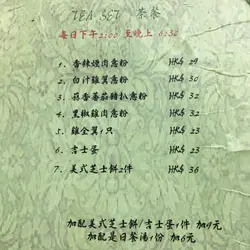 TEA SET 茶餐
每日下午2:00 至晚上 6:30
1. 香辣燻肉意粉 HK$ 29
2. 白汁雞翼意粉 HK$ 30
3. 蒜香蕃茄豬扒意粉 HK$ 32
4. 黑椒雞肉意粉 HK$ 32
5. 雞全翼1只 HK$ 23
6. 吉士蛋 HK$ 23
7. 美式芝士餅2件 HK$ 36
加配美式芝士餅/吉士蛋1件 加9元
加配是日餐湯1份 加6元